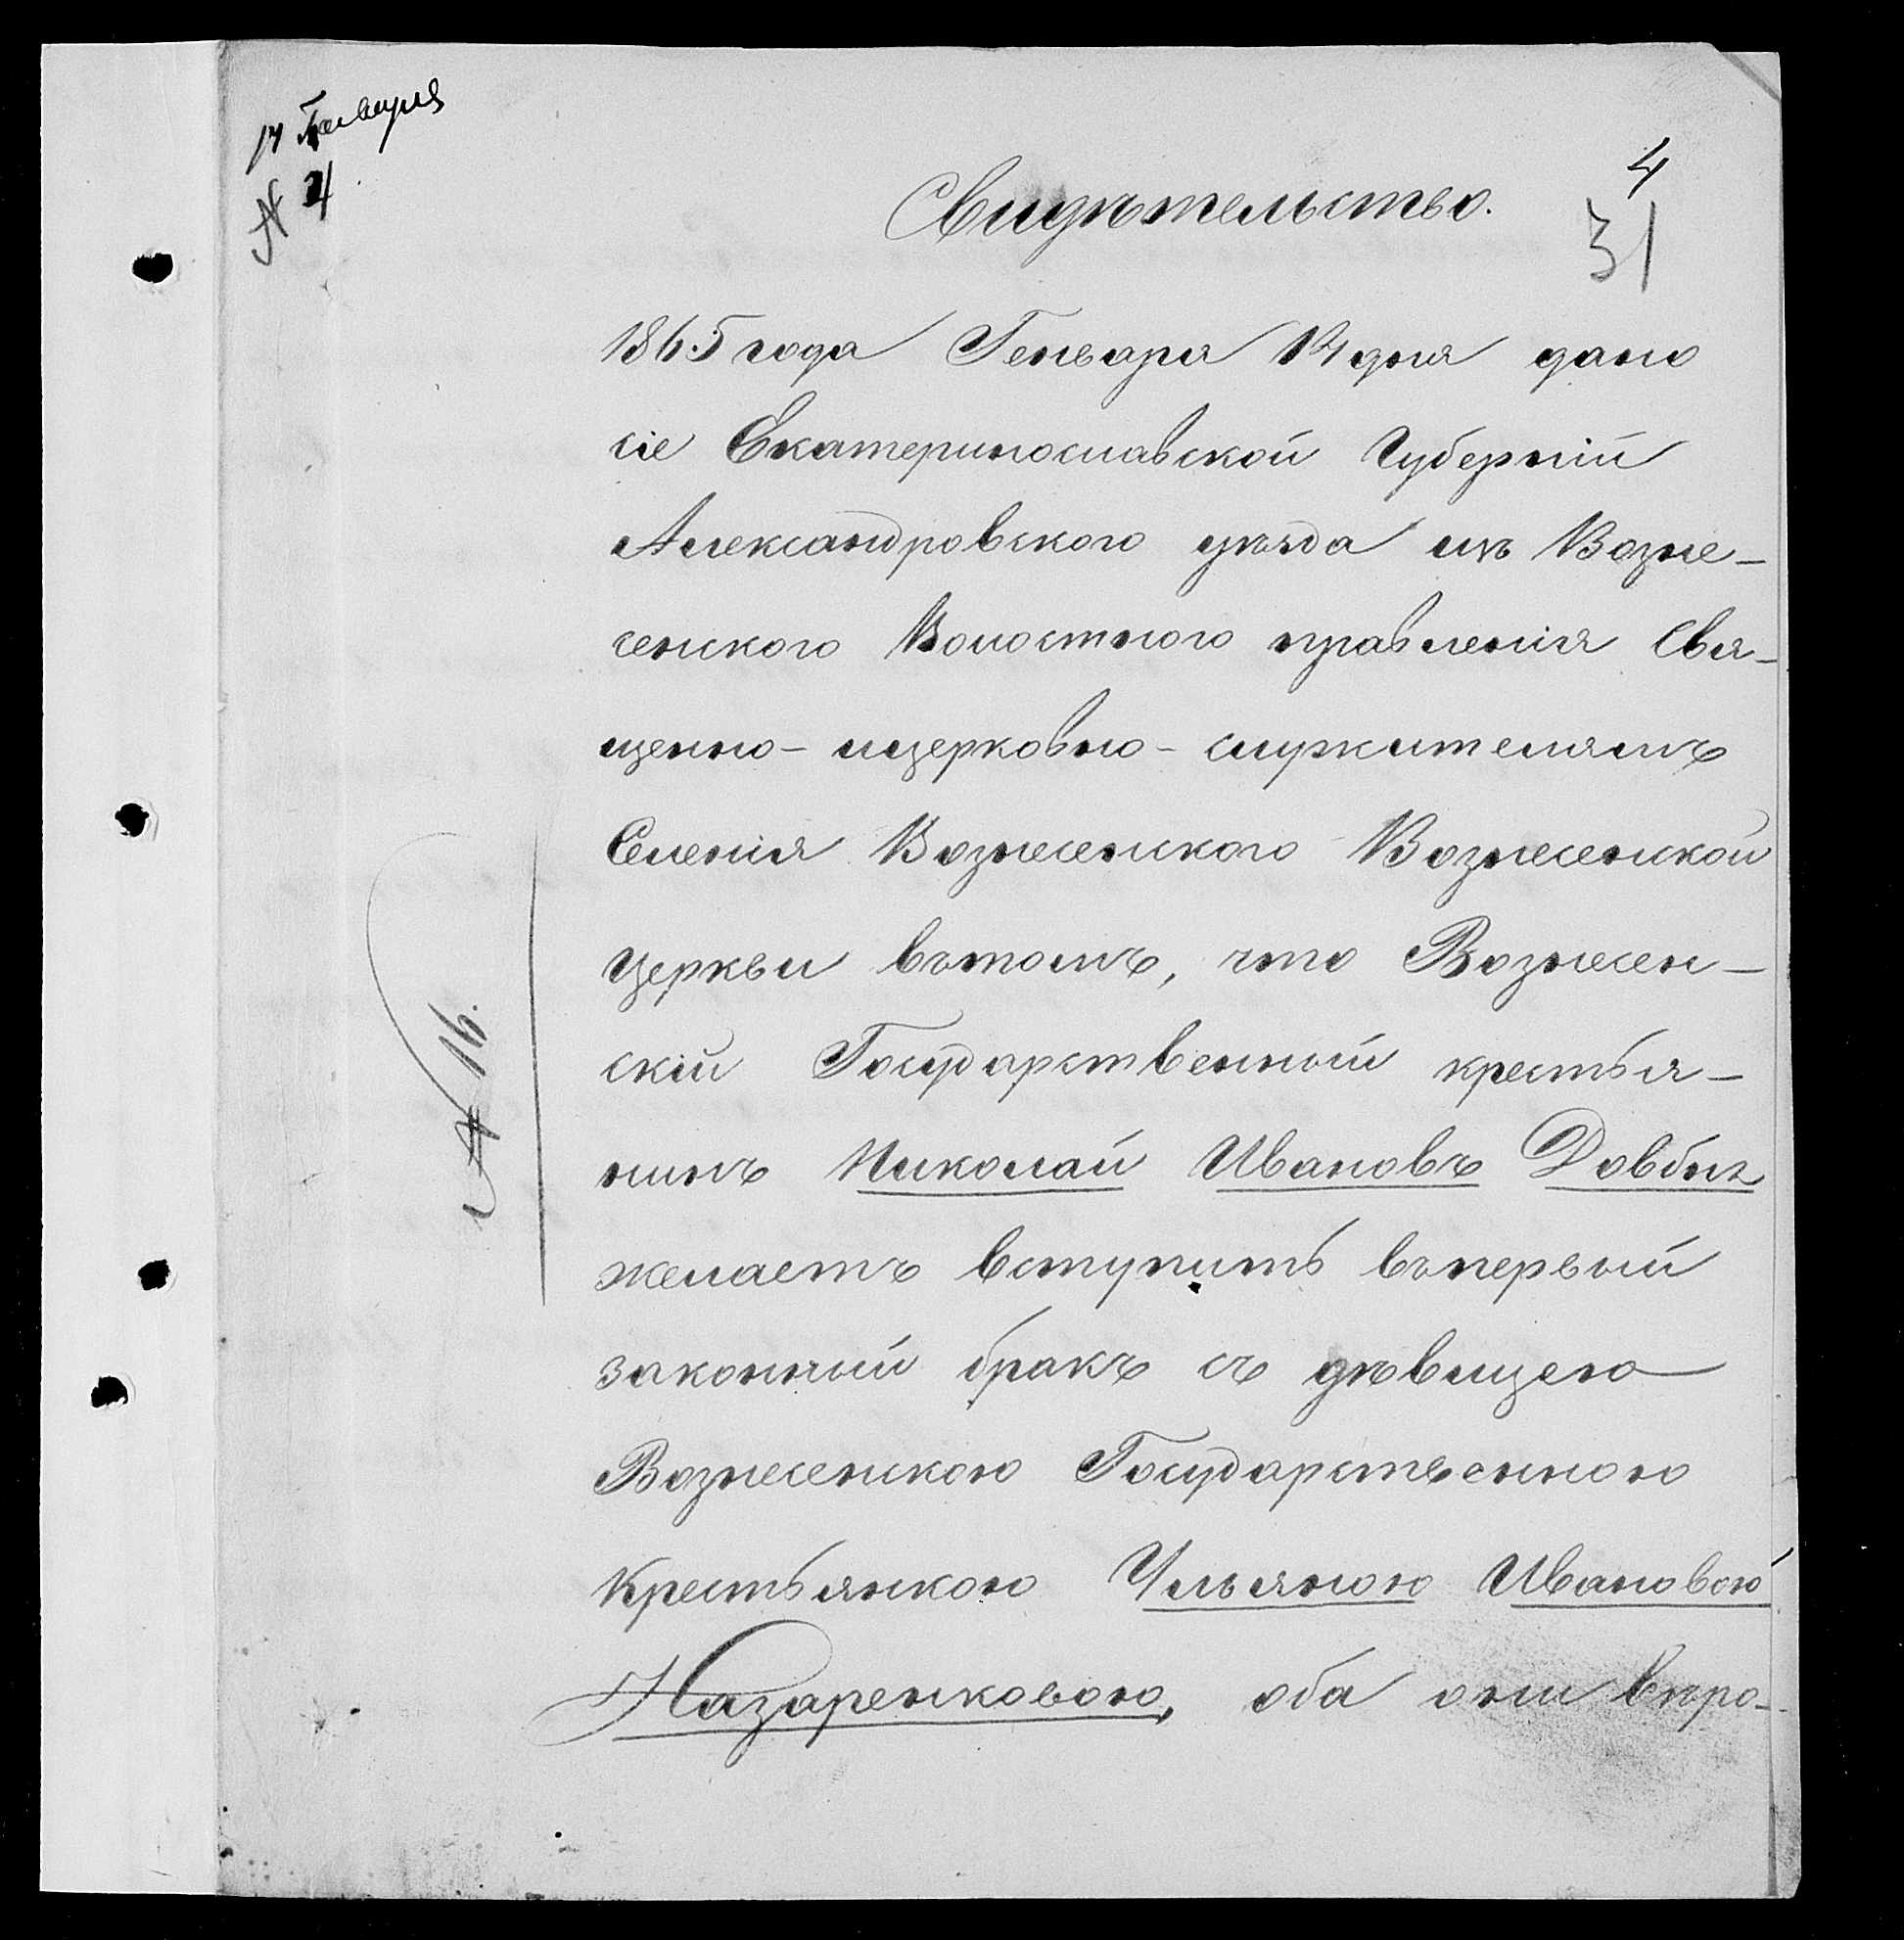 14 Генваря
№ 4
4
31
Свидѣтельство.
1865 года Генваря 14 дня дано
сіе Екатеринославской Губерніи
Александровскаго уѣзда изъ Возне-
сенскаго Волостного правленія Свя-
щенно-ицерковно-служителямъ
Селенія Вознесенскаго Вознесенской
церкви вътомъ, что Вознесен-
скій Государственный крестья-
нинъ Николай Ивановъ Довбня
желаетъ вступить въпервый
законный бракъ съ дѣвицею
Вознесенскою Государственною
крестьянкою Ульяною Ивановою
Назаренковою, оба они вѣро-
№ 16.